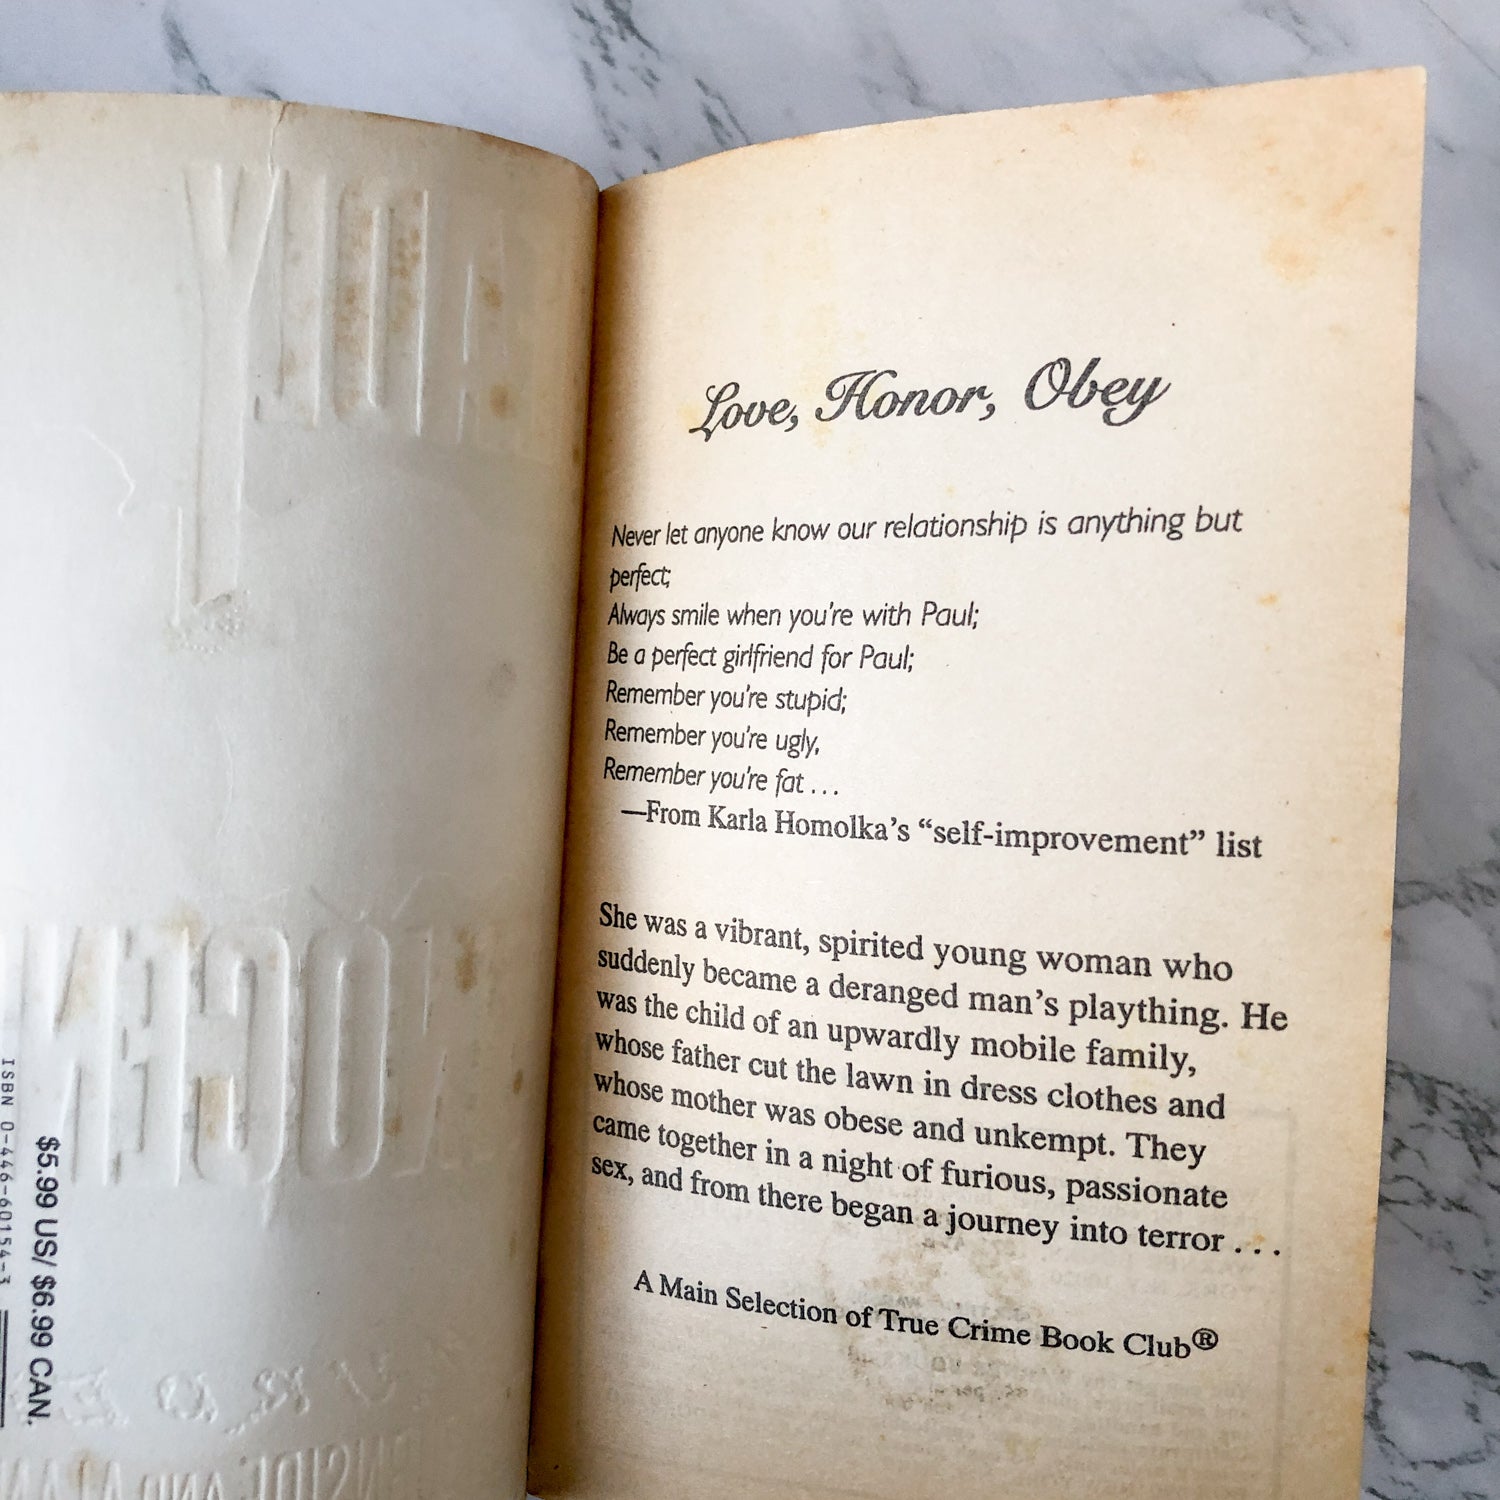 ISBN 0-446-60154-3
$5.99 US/ $6.99 CAN.
Love, Honor, Obey
Never let anyone know our relationship is anything but
perfect;
Always smile when you're with Paul;
Be a perfect girlfriend for Paul;
Remember you're stupid;
Remember you're ugly,
Remember you're fat . . .
—From Karla Homolka's “self-improvement” list
She was a vibrant, spirited young woman who
suddenly became a deranged man's plaything. He
was the child of an upwardly mobile family,
whose father cut the lawn in dress clothes and
whose mother was obese and unkempt. They
came together in a night of furious, passionate
sex, and from there began a journey into terror . . .
A Main Selection of True Crime Book Club®